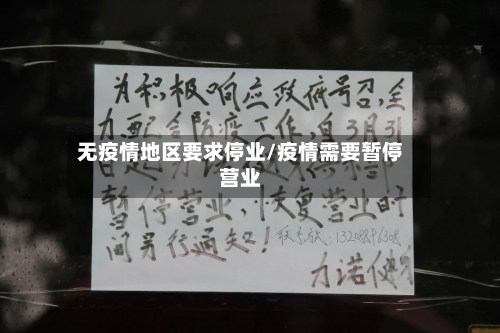 为积极响应政府号召,全
力配合防疫工作,自3月31
无疫情地区要求停业/疫情需要暂停
营业
暂停营业,恢复营业时
间另行通知!
联系
力诺健身